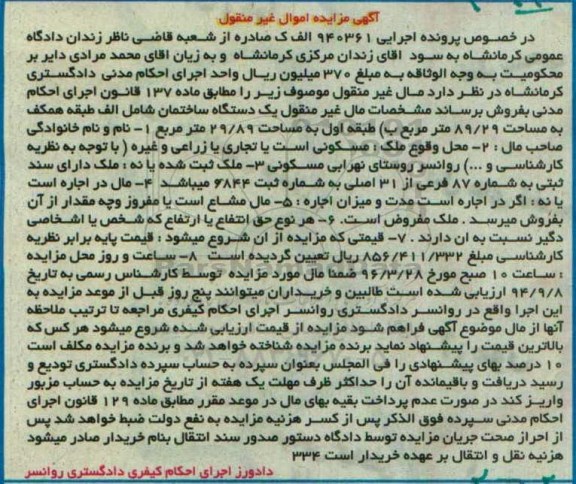 آگهی مزایده اموال غیر منقول
در خصوص پرونده اجرایی ۹۴۰۳۶۱ الف ک صادره از شعبه قاضی ناظر زندان دادگاه
عمومی کرمانشاه به سود آقای زندان مرکزی کرمانشاه و به زیان آقای محمد مرادی دایر بر
محکومیت به وجه الوثاقه به مبلغ ۳۷۰ میلیون ریال واحد اجرای احکام مدنی دادگستری
کرمانشاه در نظر دارد مال غیر منقول موصوف زیر را مطابق ماده ۱۳۷ قانون اجرای احکام
مدنی بفروش برساند مشخصات مال غیر منقول یک دستگاه ساختمان شامل الف طبقه همکف
به مساحت ۸۹/۲۹ متر مربع ب) طبقه اول به مساحت ۲۹/۸۹ متر مربع ۱- نام و نام خانوادگی
صاحب مال : ۲- محل وقوع ملک : مسکونی است یا تجاری یا زراعی و غیره ( با توجه به نظریه
کارشناسی و ...) روانسر روستای نهرابی مسکونی ۳- ملک ثبت شده یا نه : ملک دارای سند
ثبتی به شماره ۸۷ فرعی از ۳۱ اصلی به شماره ثبت ۶۸۴۴ میباشد ۴- مال در اجاره است
یا نه : اگر در اجاره است مدت و میزان اجاره : ۵- مال مشاع است یا مفروز وچه مقدار از آن
بفروش میرسد . ملک مفروض است. ۶- هر نوع حق انتفاع یا ارتفاع که شخص یا اشخاصی
دگیر نسبت به ان دارند . ۷- قیمتی که مزایده از ان شروع میشود : قیمت پایه برابر نظریه
کارشناسی مبلغ ۸۵۶/۴۱۱/۳۳۲ ریال تعیین گردیده است ۸- ساعت و روز محل مزایده
: ساعت ۱۰ صبح مورخ ۹۶/۳/۲۸ ضمنا مال مورد مزایده توسط کارشناس رسمی به تاریخ
۹۴/۹/۸ ارزیابی شده است طالبین و خریداران میتوانند پنج روز قبل از موعد مزایده به
این اجرا واقع در روانسر دادگستری روانسر اجرای احکام کیفری مراجعه تا ترتیب ملاحظه
آنها از مال موضوع آگهی فراهم شود مزایده از قیمت ارزیابی شده شروع میشود هر کس که
بالاترین قیمت را پیشنهاد نماید برنده مزایده شناخته خواهد شد و برنده مزایده مکلف است
۱۰ درصد بهای پیشنهادی را فی المجلس بعنوان سپرده به حساب سپرده دادگستری تودیع و
رسید دریافت و باقیمانده آن را حداکثر ظرف مهلت یک هفته از تاریخ مزایده به حساب مزبور
واریز کند در صورت عدم پرداخت بقیه بهای مال در موعد مقرر مطابق ماده ۱۲۹ قانون اجرای
احکام مدنی سپرده فوق الذکر پس از کسر هزنیه مزایده به نفع دولت ضبط خواهد شد پس
از احراز صحت جریان مزایده توسط دادگاه دستور صدور سند انتقال بنام خریدار صادر میشود
هزنیه نقل و انتقال بر عهده خریدار است ۳۳۴
دادورز اجرای احکام کیفری دادگستری روانسر